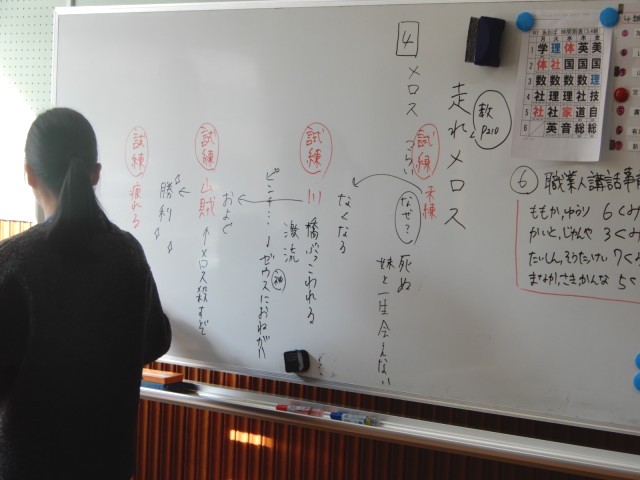 4
メロス
走れメロス
教
P210
試練
つらい
未練
なぜ?
死ぬ
妹と一生会えない
なくなる
試練
川
橋ぶっこわれる
激流
ピンチ…!
ゼウスにおねがい
およぐ
試練
山賊
メロス殺すぞ
勝利
試練
疲れる
月 火 水 木 金
1 学 理 体 英 美
2 体 社 国 国 国
3 数 数 数 数 理
4 社 理 理 社 技
5 社 社 家 道 自
6 英 音 総 総
⑥ 職業人講話事前
ももか、ゆうり 6くみ
かいと、じゅんや 3くみ